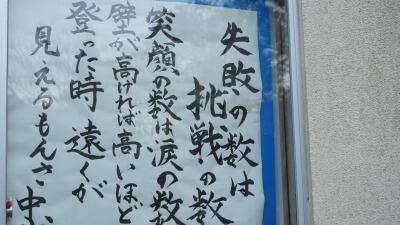 失敗の数は
挑戦の数
笑顔の数は涙の数
壁が高ければ高いほど
登った時遠くが
見えるもんさ中